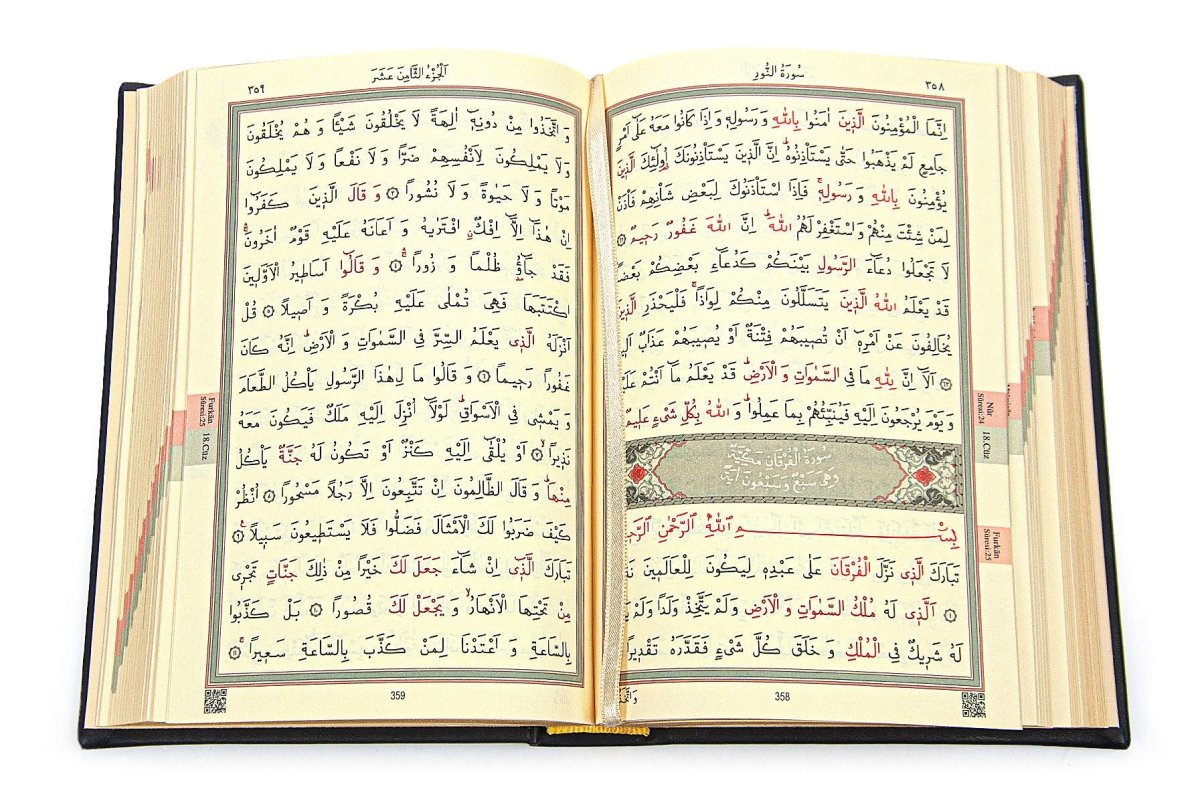 سُورَةُ النُّورِ
٣٥٨
اِنَّمَا الْمُؤْمِنُونَ الَّذ۪ينَ اٰمَنُوا بِاللّٰهِ وَرَسُولِه۪ وَاِذَا كَانُوا مَعَهُ عَلٰٓى اَمْرٍ
جَامِعٍ لَمْ يَذْهَبُوا حَتّٰى يَسْتَأْذِنُوهُۜ اِنَّ الَّذ۪ينَ يَسْتَأْذِنُونَكَ اُو۬لٰٓئِكَ الَّذ۪ينَ
يُؤْمِنُونَ بِاللّٰهِ وَرَسُولِه۪ۚ فَاِذَا اسْتَأْذَنُوكَ لِبَعْضِ شَأْنِهِمْ فَأْذَنْ
لِمَنْ شِئْتَ مِنْهُمْ وَاسْتَغْفِرْ لَهُمُ اللّٰهَۜ اِنَّ اللّٰهَ غَفُورٌ رَح۪يمٌ ﴿٦٢﴾
لَا تَجْعَلُوا دُعَٓاءَ الرَّسُولِ بَيْنَكُمْ كَدُعَٓاءِ بَعْضِكُمْ بَعْضًاۜ
قَدْ يَعْلَمُ اللّٰهُ الَّذ۪ينَ يَتَسَلَّلُونَ مِنْكُمْ لِوَاذًاۚ فَلْيَحْذَرِ الَّذ۪ينَ
يُخَالِفُونَ عَنْ اَمْرِه۪ٓ اَنْ تُص۪يبَهُمْ فِتْنَةٌ اَوْ يُص۪يبَهُمْ عَذَابٌ
﴿٦٣﴾ اَلَٓا اِنَّ لِلّٰهِ مَا فِي السَّمٰوَاتِ وَالْاَرْضِۜ قَدْ يَعْلَمُ مَٓا اَنْتُمْ عَلَيْهِۜ
وَيَوْمَ يُرْجَعُونَ اِلَيْهِ فَيُنَبِّئُهُمْ بِمَا عَمِلُواۜ وَاللّٰهُ بِكُلِّ شَيْءٍ عَل۪يمٌ
سُورَةُ الْفُرْقَانِ مَكِّيَّةٌ
وَهِيَ سَبْعٌ وَسَبْعُونَ اٰيَةً
بِسْمِ اللّٰهِ الرَّحْمٰنِ
تَبَارَكَ الَّذ۪ي نَزَّلَ الْفُرْقَانَ عَلٰى عَبْدِه۪ لِيَكُونَ لِلْعَالَم۪ينَ
﴿١﴾ اَلَّذ۪ي لَهُ مُلْكُ السَّمٰوَاتِ وَالْاَرْضِ وَلَمْ يَتَّخِذْ وَلَدًا وَلَمْ
لَهُ شَر۪يكٌ فِي الْمُلْكِ وَخَلَقَ كُلَّ شَيْءٍ فَقَدَّرَهُ تَقْد۪يرًا
358
Nûr
Sûresi:24
18.Cüz
Furkân
Sûresi:25
اَلْجُزْءُ الثَّامِنَ عَشَرَ
٣٥٩
وَاتَّخَذُوا مِنْ دُونِه۪ٓ اٰلِهَةً لَا يَخْلُقُونَ شَيْـًٔا وَهُمْ يُخْلَقُونَ
وَلَا يَمْلِكُونَ لِاَنْفُسِهِمْ ضَرًّا وَلَا نَفْعًا وَلَا يَمْلِكُونَ
مَوْتًا وَلَا حَيٰوةً وَلَا نُشُورًا ﴿٣﴾ وَقَالَ الَّذ۪ينَ كَفَرُٓوا
اِنْ هٰذَٓا اِلَّٓا اِفْكٌۨ افْتَرٰيهُ وَاَعَانَهُ عَلَيْهِ قَوْمٌ اٰخَرُونَۚ
فَقَدْ جَٓاؤُ۫ ظُلْمًا وَزُورًاۚ ﴿٤﴾ وَقَالُٓوا اَسَاط۪يرُ الْاَوَّل۪ينَ
اكْتَتَبَهَا فَهِيَ تُمْلٰى عَلَيْهِ بُكْرَةً وَاَص۪يلًا ﴿٥﴾ قُلْ
اَنْزَلَهُ الَّذ۪ي يَعْلَمُ السِّرَّ فِي السَّمٰوَاتِ وَالْاَرْضِۜ اِنَّهُ كَانَ
غَفُورًا رَح۪يمًا ﴿٦﴾ وَقَالُوا مَا لِهٰذَا الرَّسُولِ يَأْكُلُ الطَّعَامَ
وَيَمْش۪ي فِي الْاَسْوَاقِۜ لَوْلَٓا اُنْزِلَ اِلَيْهِ مَلَكٌ فَيَكُونَ مَعَهُ
نَذ۪يرًاۙ ﴿٧﴾ اَوْ يُلْقٰٓى اِلَيْهِ كَنْزٌ اَوْ تَكُونُ لَهُ جَنَّةٌ يَأْكُلُ
مِنْهَاۜ وَقَالَ الظَّالِمُونَ اِنْ تَتَّبِعُونَ اِلَّا رَجُلًا مَسْحُورًا ﴿٨﴾ اُنْظُرْ
كَيْفَ ضَرَبُوا لَكَ الْاَمْثَالَ فَضَلُّوا فَلَا يَسْتَط۪يعُونَ سَب۪يلًا۟ ﴿٩﴾
تَبَارَكَ الَّذ۪ٓي اِنْ شَٓاءَ جَعَلَ لَكَ خَيْرًا مِنْ ذٰلِكَ جَنَّاتٍ تَجْر۪ي
مِنْ تَحْتِهَا الْاَنْهَارُۙ وَيَجْعَلْ لَكَ قُصُورًا ﴿١٠﴾ بَلْ كَذَّبُوا
بِالسَّاعَةِ وَاَعْتَدْنَا لِمَنْ كَذَّبَ بِالسَّاعَةِ سَع۪يرًاۚ ﴿١١﴾
359
Furkân
Sûresi:25
18.Cüz